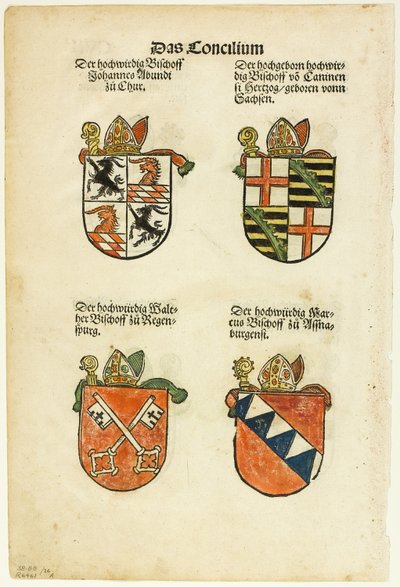 Das Concilium
Der hochwirdig Bischoff
Johannes Abundi
zů Chur.
Der hochgeborn hochwir-
dig Bischoff vō Caminen
si Hertzog/geboren vonn
Sachsen.
Der hochwürdig Walt-
her Bischoff zů Regen-
spurg.
Der hochwürdig Mar-
cus Bischoff zů Assna-
burgensi.